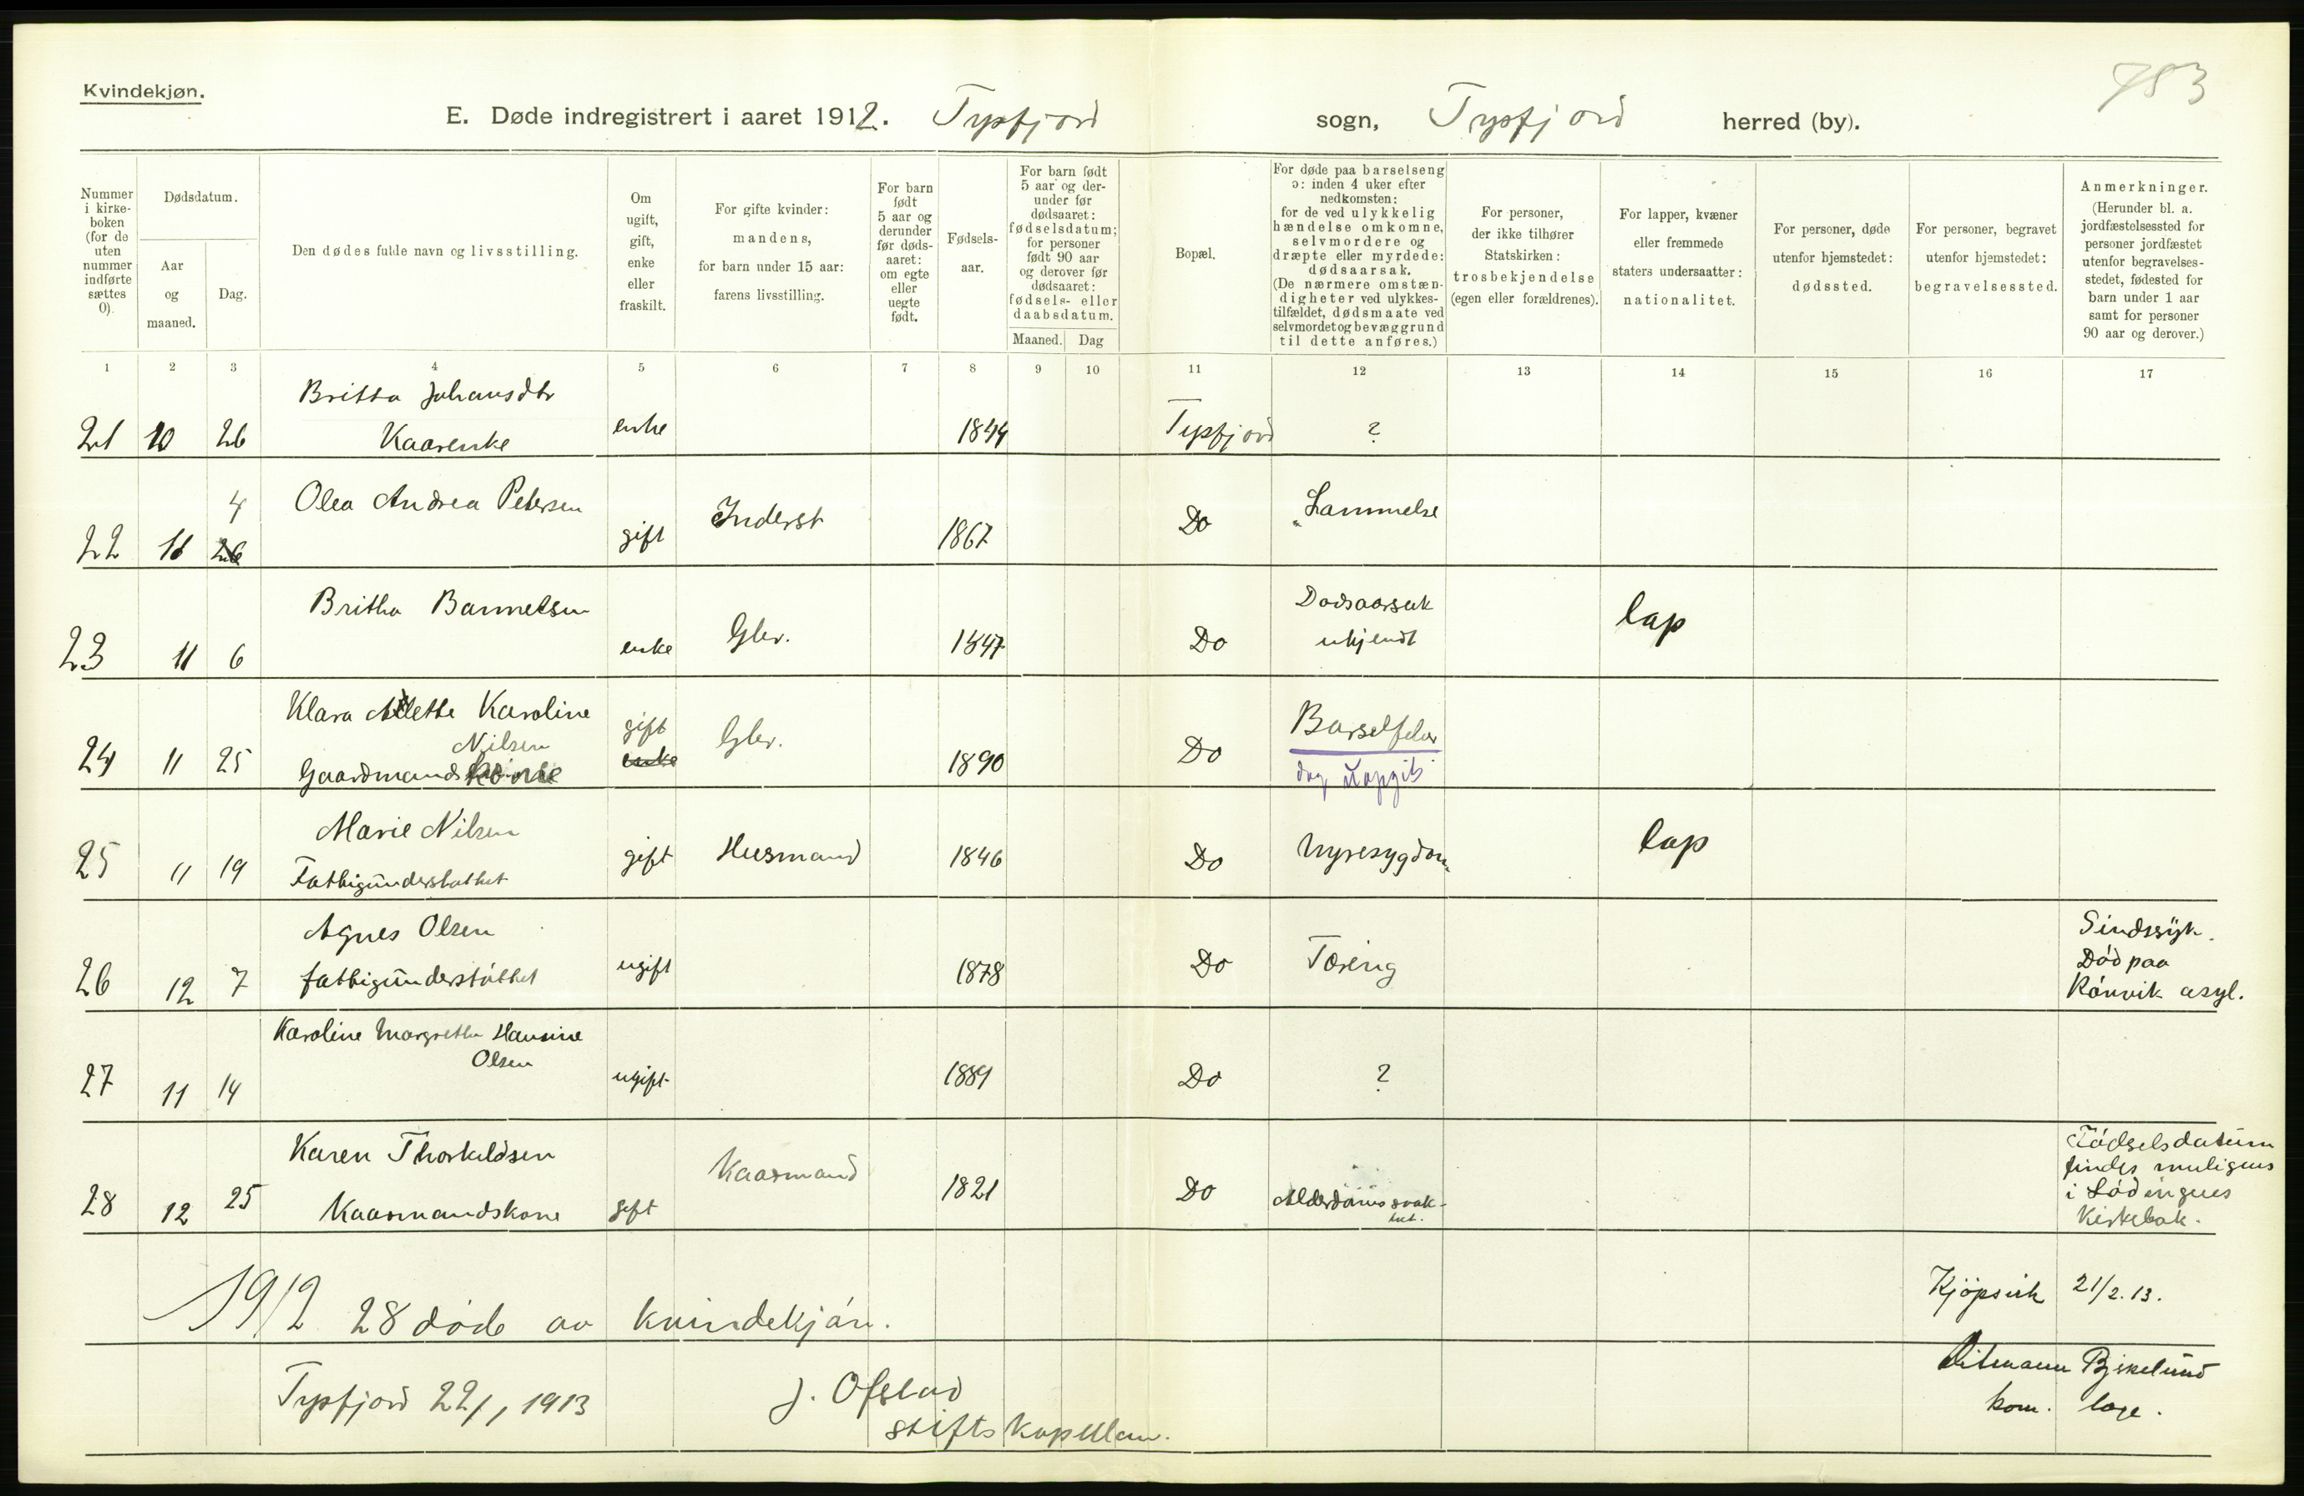 Kvindekjøn.
783
E. Døde indregistrert i aaret 1912. Tysfjord sogn, Tysfjord herred (by).
Nummer i kirkeboken (for de uten nummer indførte sættes 0).
Dødsdatum.
Aar og maaned.
Dag.
Den dødes fulde navn og livsstilling.
Om ugift, gift, enke eller fraskilt.
For gifte kvinder: mandens, for barn under 15 aar: farens livsstilling.
For barn født 5 aar og derunder før dødsaaret: om egte eller uegte født.
Fødselsaar.
For barn født 5 aar og derunder før dødsaaret: fødselsdatum; for personer født 90 aar og derover før dødsaaret: fødsels- eller daabsdatum.
Maaned. Dag
Bopæl.
For døde paa barselseng ɔ: inden 4 uker efter nedkomsten: for de ved ulykkelig hændelse omkomne, selvmordere og dræpte eller myrdede: dødsaarsak. (De nærmere omstændigheter ved ulykkestilfældet, dødsmaate ved selvmordet og bevæggrund til dette anføres.)
For personer, der ikke tilhører Statskirken: trosbekjendelse (egen eller forældrenes).
For lapper, kvæner eller fremmede staters undersaatter: nationalitet.
For personer, døde utenfor hjemstedet: dødssted.
For personer, begravet utenfor hjemstedet: begravelsessted.
Anmerkninger. (Herunder bl. a. jordfæstelsessted for personer jordfæstet utenfor begravelsesstedet, fødested for barn under 1 aar samt for personer 90 aar og derover.)
1 2 3 4 5 6 7 8 9 10 11 12 13 14 15 16 17
Britta Johansdtr
21 10 26 Kaarenke enke 1844 Tysfjord ?
4 Olea Andrea Petersen
22 11 26 gift Inderst 1867 Do Lammelse
Britha Bannetsen
23 11 6 enke Gbr. 1847 Do Dødsaarsak ukjendt lap
Klara Alette Karoline Nilsen
24 11 25 Gaardmandskone gift enke Gbr. 1890 Do Barselfeber dag uopgit
Marie Nilsen
25 11 19 Fattigunderstøttet gift Husmand 1846 Do Nyresygdom lap
Agnes Olsen
26 12 7 fattigunderstøttet ugift 1878 Do Tæring
Sindssyk.
Død paa
Rønvik asyl.
Karoline Margrethe Hansine
Olsen
27 11 14 ugift 1889 Do ?
Karen Thorkildsen
28 12 25 Kaarmandskone gift Kaarmand 1821 Do Alderdomssvakhet.
Fødselsdatum
findes muligens
i Lødingens
Kirkebok.
1912 28 døde av kvindekjøn.
Kjøpsvik 21/2.13.
Tysfjord 22/1 1913 J. Ofstad
stiftskapellan.
Ditmann Bjrkelund
kom. læge.